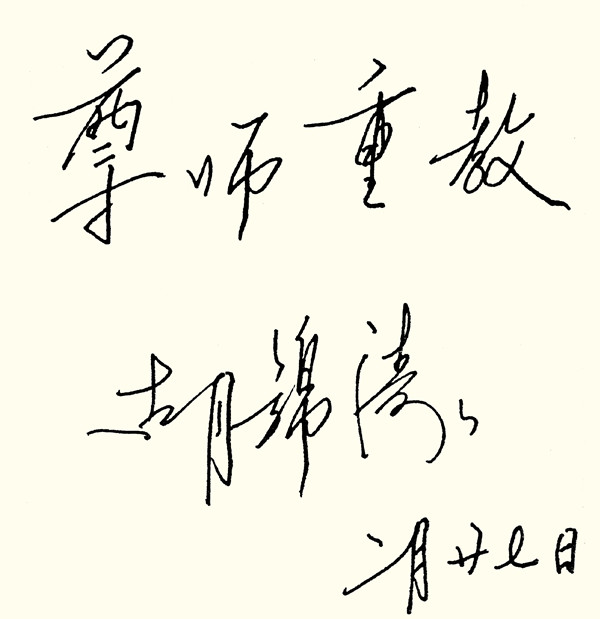 尊师重教
胡锦涛
二月廿七日